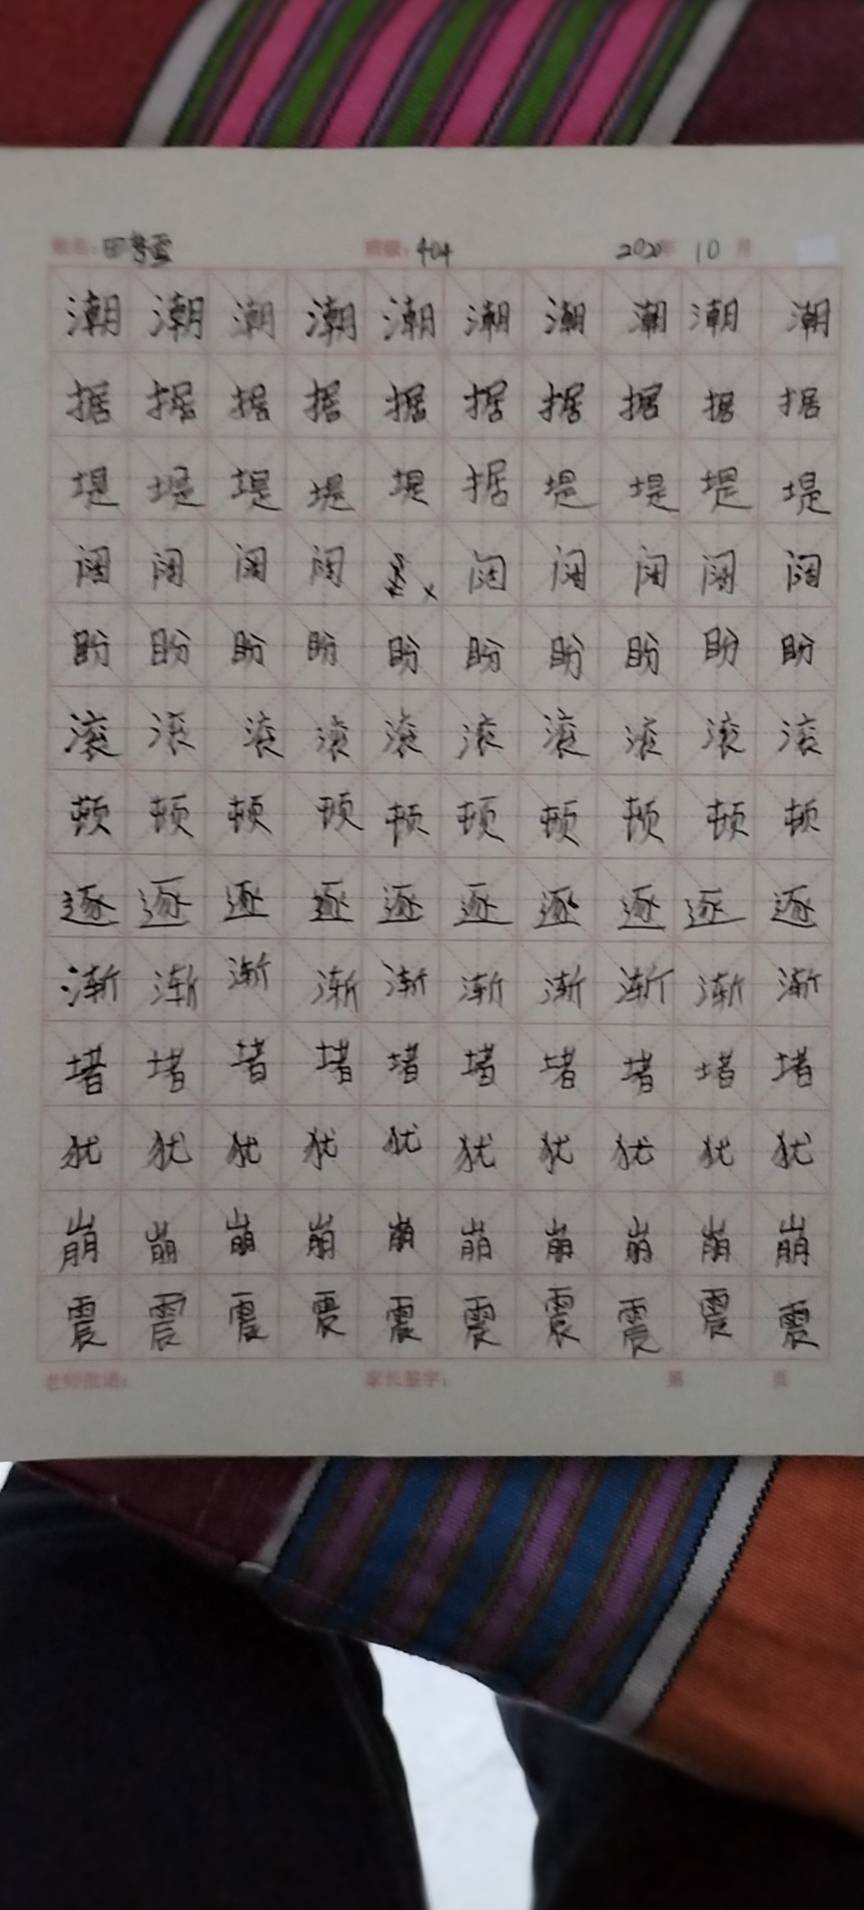 姓名: 田 雪 班级: 404 2020年 10月
潮潮潮潮潮潮潮潮潮潮
据据据据据据据据据据
堤堤堤堤堤据堤堤堤堤
阔阔阔阔阔阔阔阔阔
盼盼盼盼盼盼盼盼盼盼
滚滚滚滚滚滚滚滚滚滚
顿顿顿顿顿顿顿顿顿顿
逐逐逐逐逐逐逐逐逐逐
渐渐渐渐渐渐渐渐渐渐
堵堵堵堵堵堵堵堵堵堵
犹犹犹犹犹犹犹犹犹犹
崩崩崩崩崩崩崩崩崩崩
震震震震震震震震震震
老师批语: 家长签字: 第 页